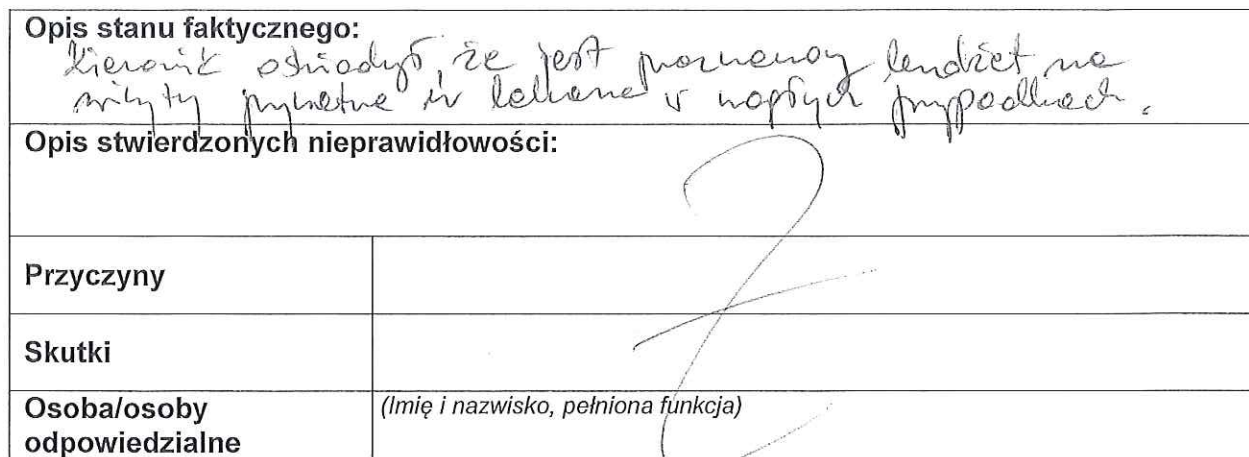 Opis stanu faktycznego:
Kierownik oświadczył, że jest przeznaczony budżet na
wizyty prywatne u lekarza w nagłych przypadkach.
Opis stwierdzonych nieprawidłowości:
Przyczyny
Skutki
Osoba/osoby
odpowiedzialne
(Imię i nazwisko, pełniona funkcja)